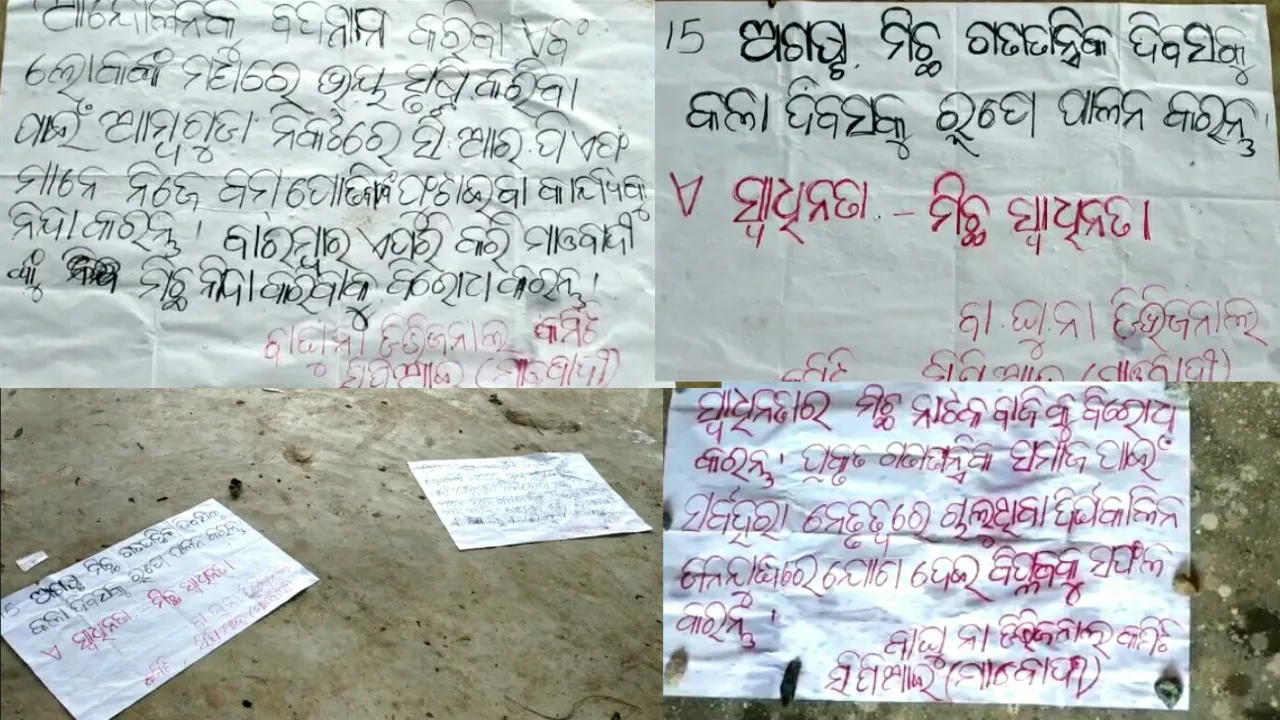 ଆନ୍ଦୋଳନକୁ ବଦନାମ କରିବା ଏବଂ
ଲୋକାଙ୍କ ମଧ୍ୟରେ ଭୟ ସୃଷ୍ଟି କରିବା
ପାଇଁ ଆମ୍ବାଗୁଡା ନିକଟରେ ସି.ଆର.ପି ଏଫ
ମାନେ ନିଜେ ବମ ପୋତି ଫଟାଇବା କାର୍ଯ୍ୟକୁ
ନିନ୍ଦା କରନ୍ତୁ । ବାରମ୍ବାର ଏପରି କରି ମାଓବାଦୀ
ଙ୍କୁ ମିଚ୍ଛ ନିନ୍ଦା କରିବାକୁ ବିରୋଧ କରନ୍ତୁ ।
ବା ଘୁ ନା ଡିଭିଜନାଲ କମିଟି
ସିପିଆଇ (ମାଓବାଦୀ)
15 ଅଗଷ୍ଟ ମିଚ୍ଛ ଗଣତାନ୍ତ୍ରିକ ଦିବସକୁ
କଲା ଦିବସକୁ ରୂପେ ପାଳନ କରନ୍ତୁ ।
ଏ ସ୍ୱାଧିନତା - ମିଚ୍ଛ ସ୍ୱାଧିନତା
ବା . ଘୁ . ନା ଡିଭିଜନାଲ
କମିଟି ସିପିଆଇ (ମାଓବାଦୀ)
15 ଅଗଷ୍ଟ ମିଚ୍ଛ ଗଣତାନ୍ତ୍ରିକ ଦିବସକୁ
କଲା ଦିବସକୁ ରୂପେ ପାଳନ କରନ୍ତୁ
ଏ ସ୍ୱାଧିନତା ମିଚ୍ଛ ସ୍ୱାଧିନତା
ସ୍ୱାଧିନତାର ମିଚ୍ଛ ନାଟକ ବାଜିକୁ ବିରୋଧ
କରନ୍ତୁ । ପ୍ରକୃତ ଗଣତାନ୍ତ୍ରିକ ସମାଜ ପାଇଁ
ସର୍ବହରା ନେତୃତ୍ୱରେ ଚାଲୁଥିବା ଦିର୍ଘକାଳିନ
ଜନଯୁଦ୍ଧରେ ଯୋଗ ଦେଇ ବିପ୍ଳବକୁ ସଫଳ
କରନ୍ତୁ ।
ବା ଘୁ ନା ଡିଭିଜନାଲ କମିଟି
ସିପିଆଇ (ମାଓବାଦୀ)